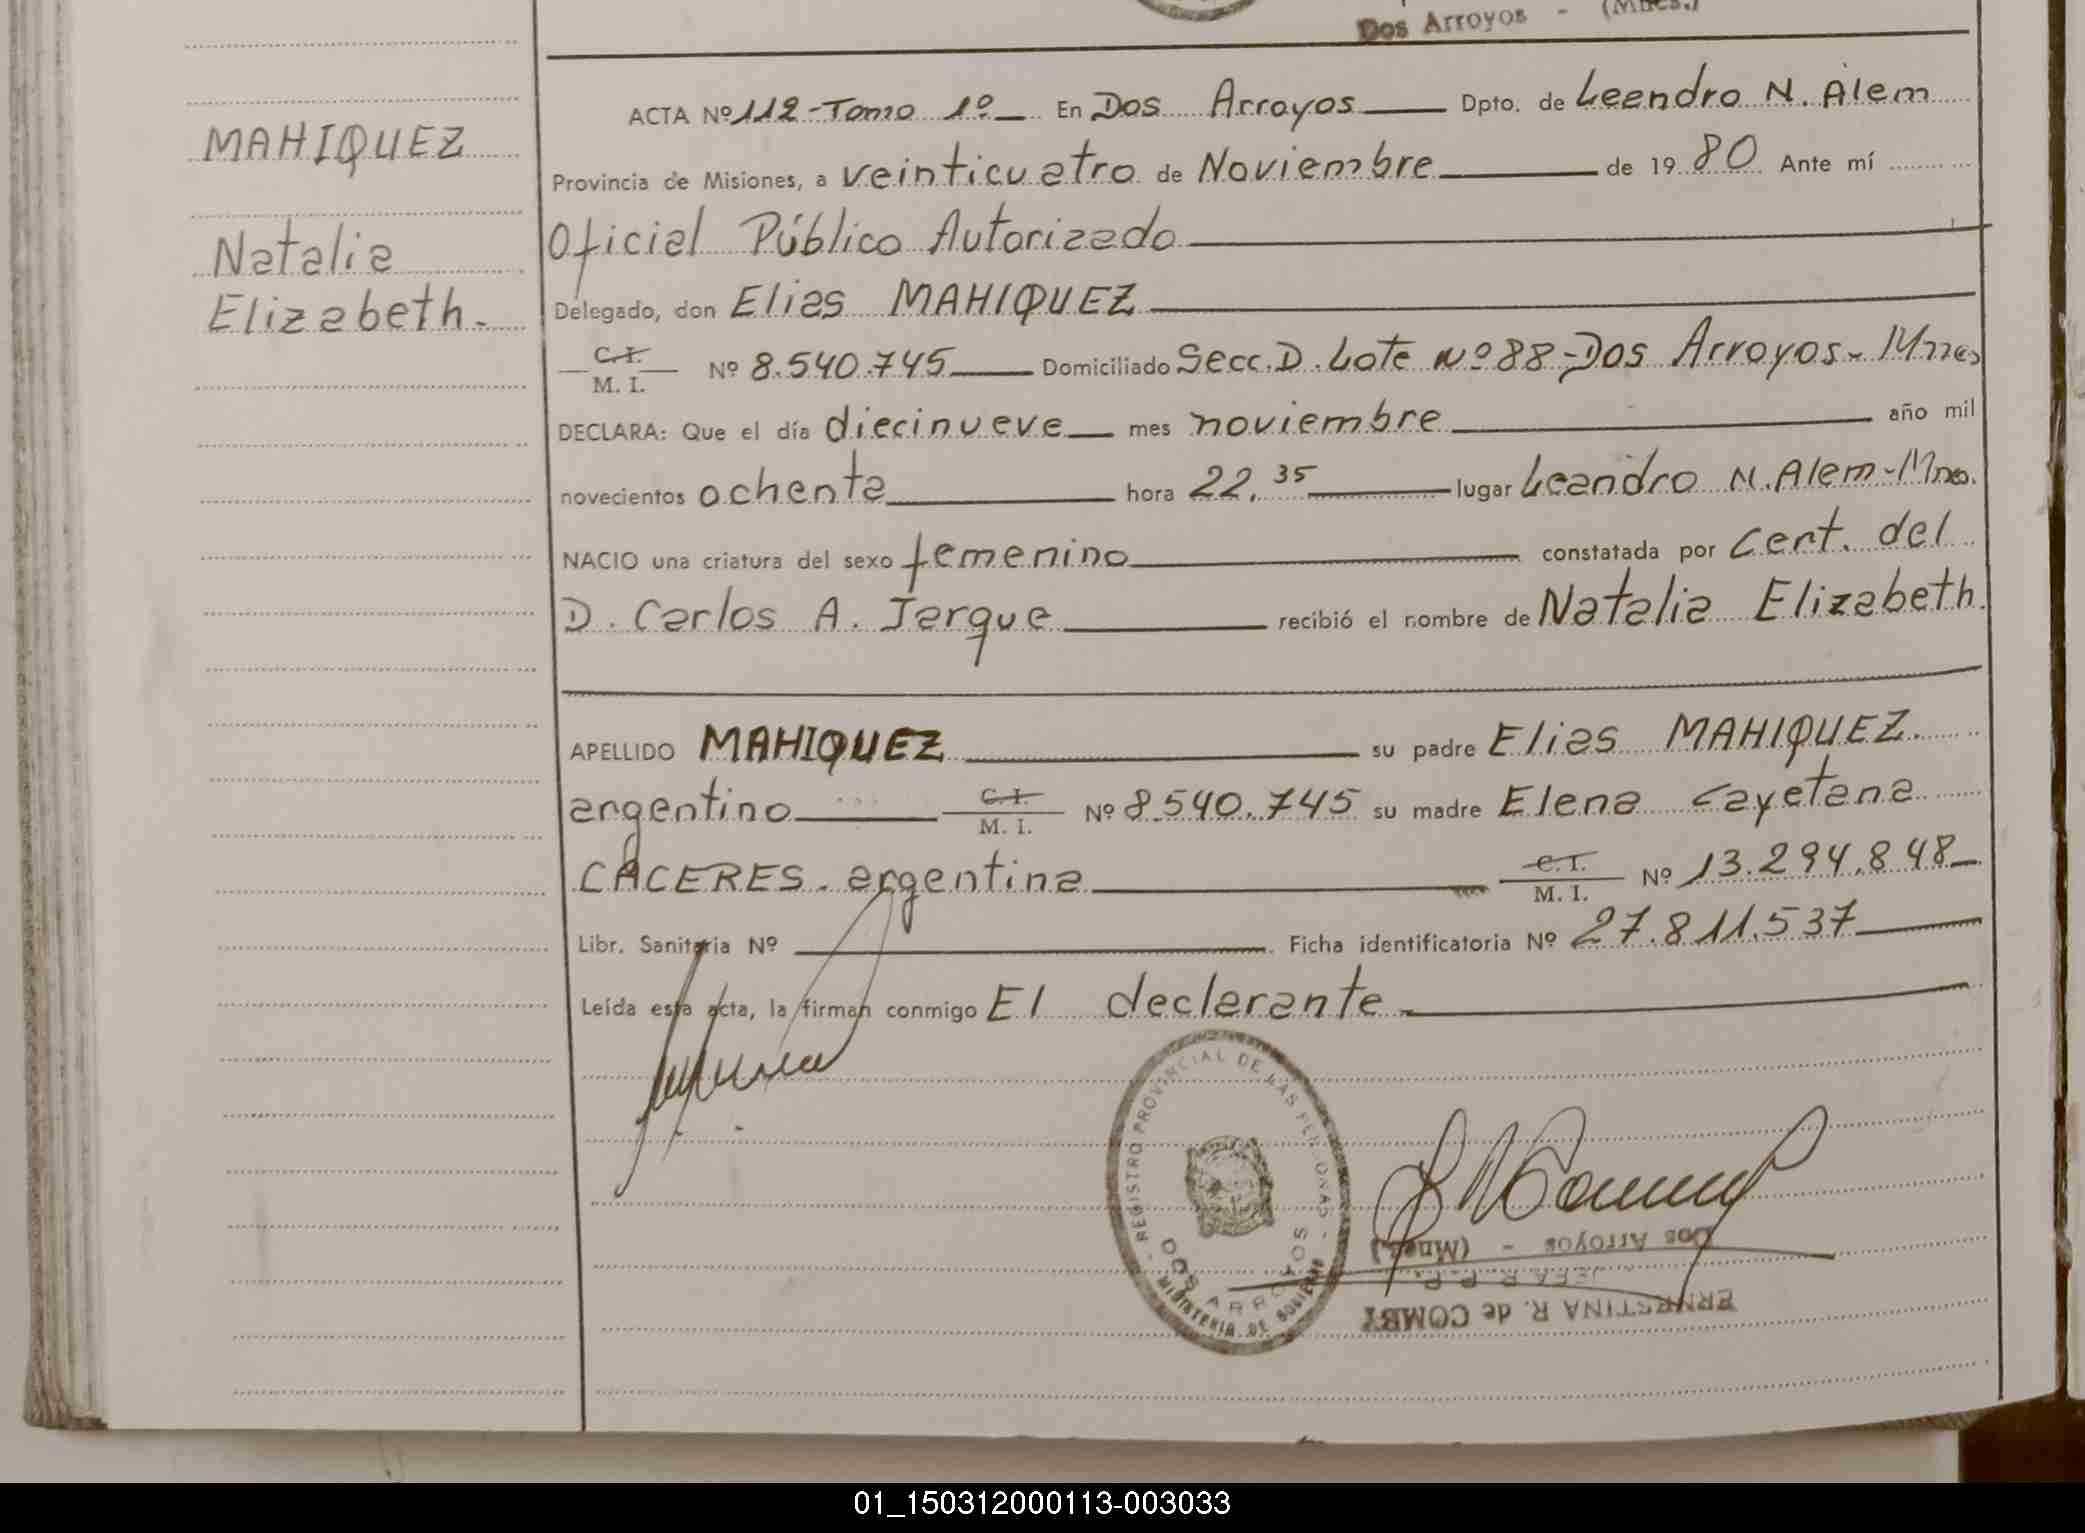 Dos Arroyos - (Mnes.)
MAHIQUEZ
Natalia
Elizabeth.
ACTA Nº 112 - Tomo 1º En Dos Arroyos Dpto. de Leandro N. Alem
Provincia de Misiones, a veinticuatro de Noviembre de 19 80 Ante mí
Oficial Público Autorizado
Delegado, don Elias MAHIQUEZ
C. I.
M. I. Nº 8.540.745 Domiciliado Secc. D. Lote Nº 88 - Dos Arroyos - Mnes
DECLARA: Que el día diecinueve mes noviembre año mil
novecientos ochenta hora 22,35 lugar Leandro N. Alem - Mnes.
NACIO una criatura del sexo femenino constatada por Cert. del
D. Carlos A. Jarque recibió el nombre de Natalia Elizabeth.
APELLIDO MAHIQUEZ su padre Elias MAHIQUEZ.
argentino C. I. M. I. Nº 8.540.745 su madre Elena Cayetana
CÁCERES. argentina C. I. M. I. Nº 13.294.848
Libr. Sanitaria Nº Ficha identificatoria Nº 27.811.537
Leída esta acta, la firman conmigo El declarante
REGISTRO PROVINCIAL DE LAS PERSONAS
DOS ARROYOS
MINISTERIO DE GOBIERNO
Dos Arroyos - (Mnes.)
JEFA R. P. P.
ERNESTINA R. de COMBY
01_150312000113-003033